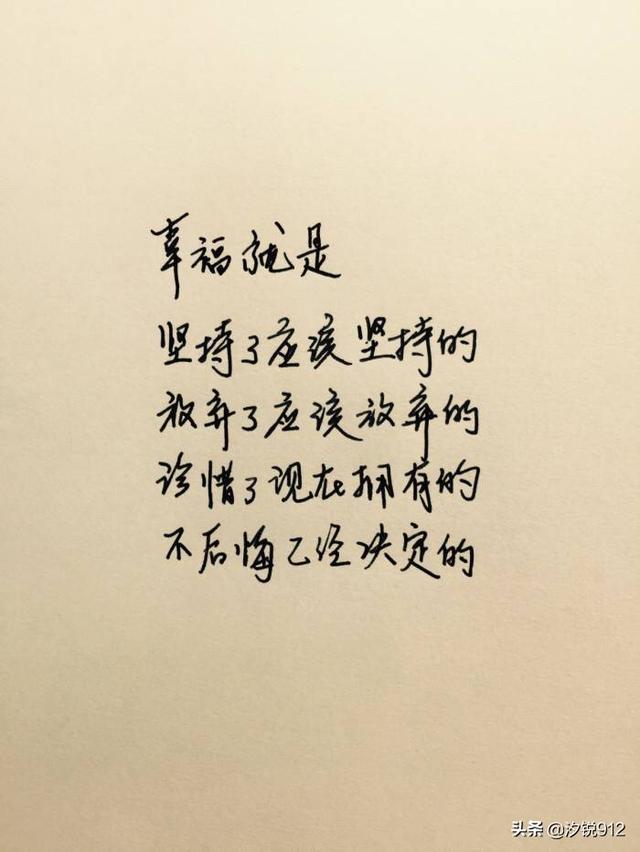 幸福就是
坚持了应该坚持的
放弃了应该放弃的
珍惜了现在拥有的
不后悔已经决定的
头条 @汐锐912